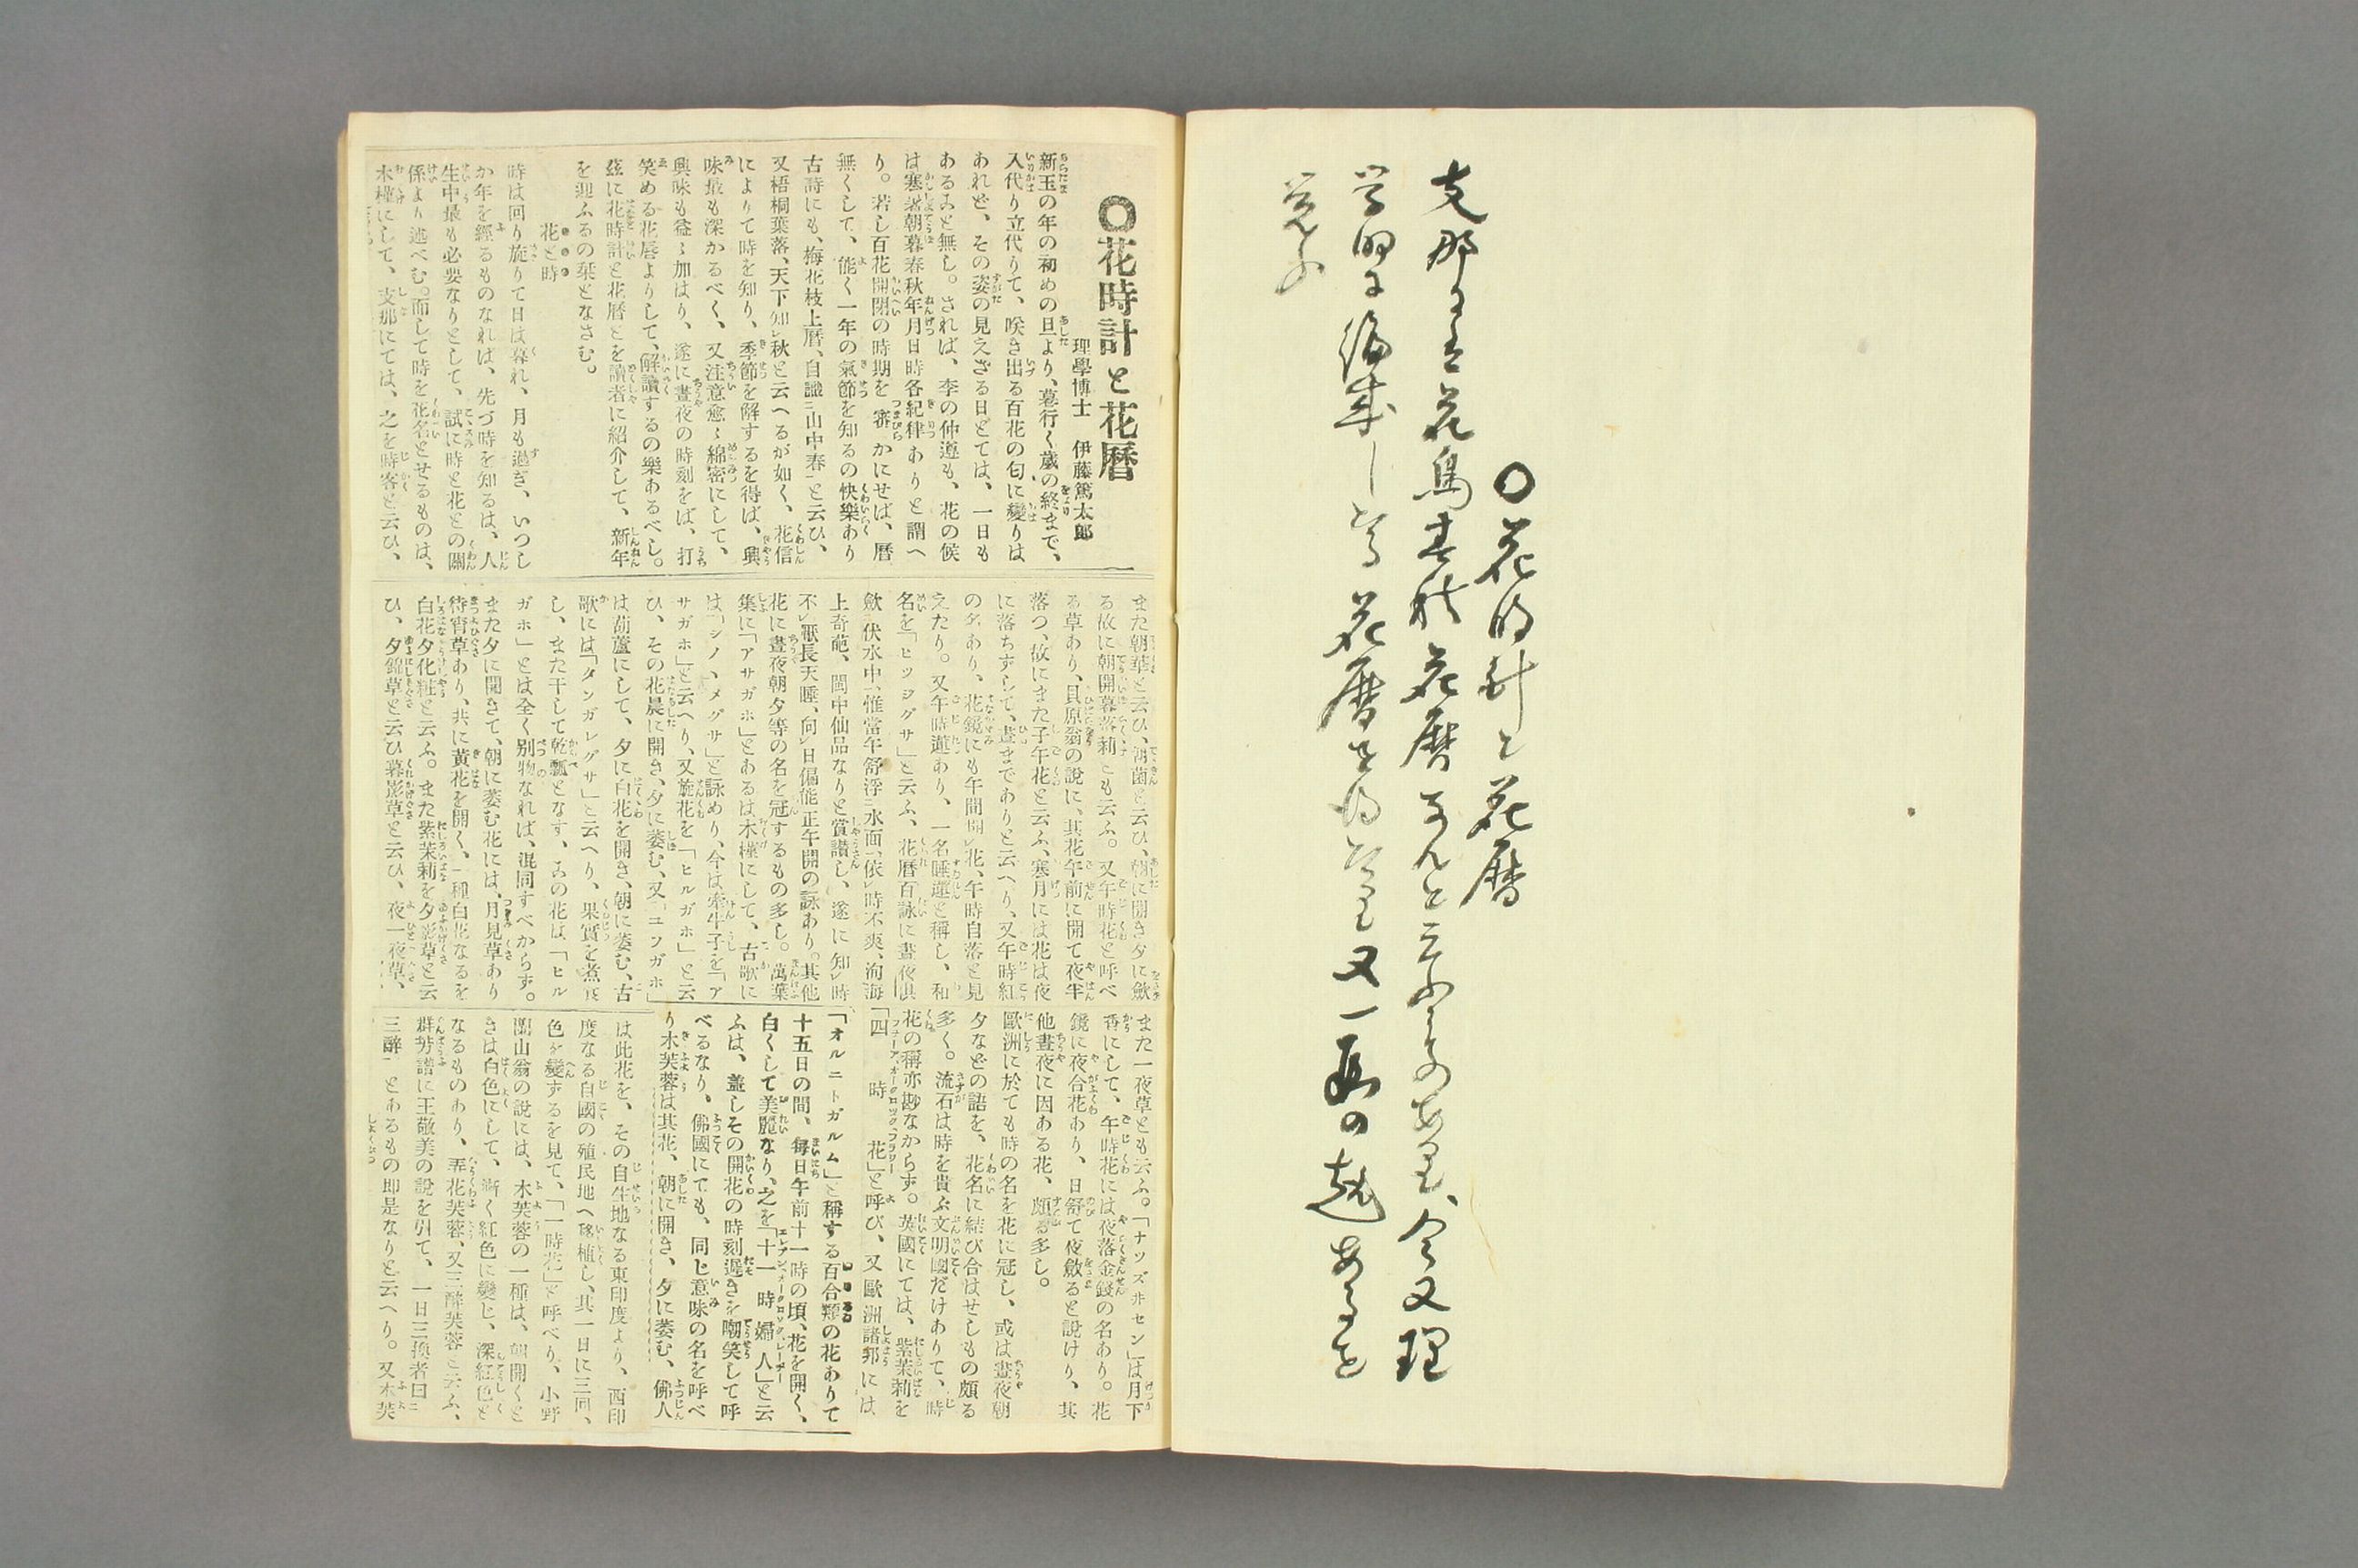 〇花時計と花暦
支那には花鳥春秋花暦なんと云ふものあり、今又理
学的に編成したる花暦を得たり又一段の趣あるを
覚ふ
〇花時計と花暦
理學博士 伊藤篤太郎
新玉の年の初めの旦より、暮行く歳の終まで、
入代り立代りて、咲き出る百花の匂に變りは
あれど、その姿の見えざる日とては、一日も
あるこど無し。されば、季の仲違も、花の候
は寒暑朝暮春秋年月日時各紀律ありと謂へ
り。若し百花開閉の時期を審かにせば、暦
無くして、能く一年の氣節を知るの快樂あり
古詩にも、梅花枝上暦、自識二山中春一と云ひ、
又梧桐葉落、天下知レ秋と云へるが如く、花信
によりて時を知り、季節を解するを得ば、興
味最も深かるべく、又注意愈〻綿密にして、
興味も益〻加はり、遂に晝夜の時刻をば、打
笑める花唇よりして、解讀するの樂あるべし。
茲に花時計と花暦とを讀者に紹介して、新年
を迎ふるの栞となさむ。
花と時
時は回り旋りて日は暮れ、月も過ぎ、いつし
か年を經るものなれば、先づ時を知るは、人
生中最も必要なりとして、試に時と花との關
係より述べむ。而して時を花名とせるものは、
木槿にして、支那にては、之を時客と云ひ、
また朝華と云ひ、朝菌と云ひ、朝に開き夕に歛
る故に朝開暮落莉とも云ふ。又午時花と呼べ
る草あり、貝原翁の説に、其花午前に開て夜半
落つ、故にまた子午花と云ふ、寒月には花は夜
に落ちずして、晝までありと云へり、又午時紅
の名あり、花鏡にも午間開レ花、午時自落と見
えたり。又午時蓮あり、一名睡蓮と稱し、和
名を「ヒツジグサ」と云ふ、花暦百詠に晝夜倶
歛伏水中、惟當午舒浮二水面一、依レ時不爽、洵海
上奇葩、閩中仙品なりと賞讃し、遂に知レ時
不レ厭長天睡、向レ日偏能正午開の詠あり。其他
花に晝夜朝夕等の名を冠するもの多し。萬葉
集に「アサガホ」とあるは木槿にして、古歌に
は「シノヽメグサ」と詠めり、今は牽牛子を「ア
サガホ」と云へり、又旋花を「ヒルガホ」と云
ひ、その花晨に開き、夕に萎む、又「ユフガホ」
は葫蘆にして、夕に白花を開き、朝に萎む、古
歌には「タソガレグサ」と云へり、果實を煮食
し、また干して乾瓢となす、この花は「ヒル
ガホ」とは全く別物なれば、混同すべからす。
また夕に開きて、朝に萎む花には、月見草あり
待宵草あり、共に黄花を開く、一種白花なるを
白花夕化粧と云ふ。また紫茉莉を夕影草と云
ひ、夕錦草と云ひ暮影草と云ひ、夜一夜草、
また一夜草とも云ふ。「ナツズヰセン」は月下
香にして、午時花には夜落金錢の名あり。花
鏡に夜合花あり、日舒て夜歛ると説けり、其
他晝夜に因ある花、頗る多し。
歐洲に於ても時の名を花に冠し、或は晝夜朝
夕などの語を、花名に結び合はせしもの頗る
多く。流石は時を貴ぶ文明國だけありて、時
花の稱亦尠なからす。英國にては、紫茉莉を
「四時花」と呼び、又歐洲諸邦には
「オルニトガルム」と稱する百合類の花ありて
十五日の間、毎日午前十一時の頃、花を開く、
白くして美麗なり、之を「十一時婦人」と云
ふは、蓋しその開花の時刻遲きを嘲笑して呼
べるなり、佛國にても、同じ意味の名を呼べ
り木芙蓉は其花、朝に開き、夕に萎む、佛人
は此花を、その自生地なる東印度より、西印
度なる自國の殖民地へ移植し、其一日に三回、
色を變するを見て、「一時花」と呼べり、小野
蘭山翁の説には、木芙蓉の一種は、朝開くと
きは白色にして、漸く紅色に變じ、深紅色と
なるものあり、弄花芙蓉、又三醉芙蓉と云ふ、
群芳譜に王敬美の説を引て、一日三換者曰二
三醉一とあるもの即是なりと云へり。又木芙